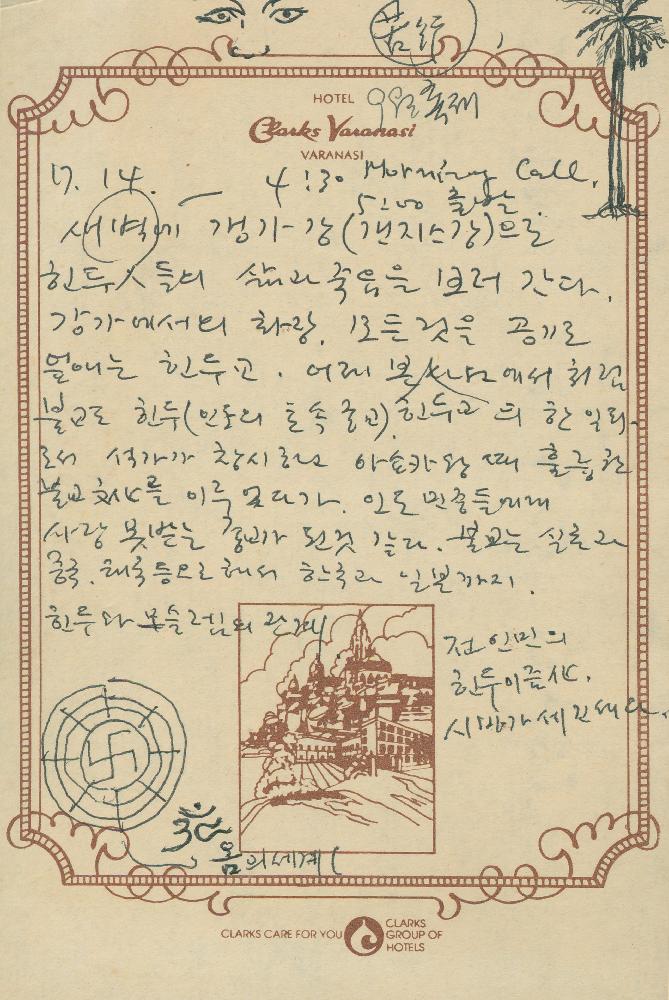 苦行
HOTEL
Clarks Varanasi
VARANASI
축제
17. 14. 4:30 Morning Call,
5:00 출발.
새벽에 갠가강(갠지스강)으로
힌두人들의 삶과 죽음을 보러 간다.
강가에서의 화장. 모든 것을 공기로
없애는 힌두교. 어제 본 에서 처럼
불교도 힌두(인도의 토속종교) 힌두교의 한 일파
로서 석가가 창시하고 아쇼카왕 때 훌륭한
불교文化를 이루었다가. 인도 민중들에게
사랑 못받는 종교가 된것 같다. 불교는 실론과
중국. 태국등으로 해서 한국과 일본까지.
힌두와 모슬레임의 관계
전 인민의
힌두이즘化.
시바가 세긴데다.
ॐ
옴의세계(
CLARKS CARE FOR YOU
CLARKS
GROUP OF
HOTELS